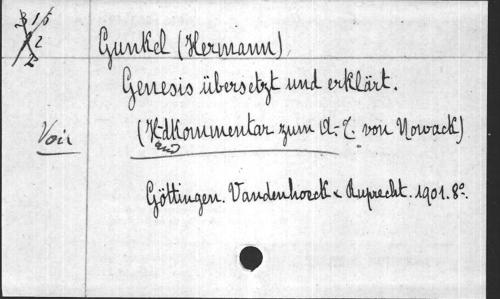 Gunkel (Hermann),
Genesis übersetzt und erklärt.
Voir
(Hdkommentar zum A. T. von Nowack)
and
Göttingen. Vandenhoeck & Ruprecht. 1901. 8°.